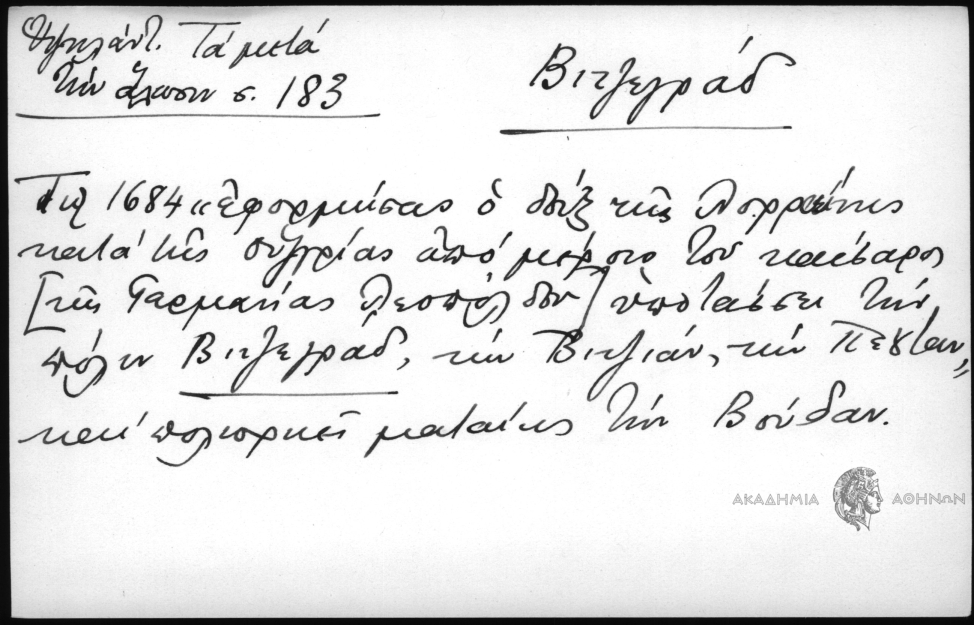 Ὑψηλάντ. Τά μετά
τήν ἅλωσιν σ. 183
Βιτζεγράδ
Τῷ 1684 «ἐφορμήσας ὁ δούξ τῆς Λορραίνης
κατά τῆς Οὑγγρίας ἀπό μέρους τοῦ καίσαρος
[τῆς Γερμανίας Λεοπόλδου] ὑποτάσσει τήν
πόλιν Βιτζεγράδ, τήν Βιτζιάν, τήν Πέσταν,"
καί πολιορκεῖ ματαίως τήν Βούδαν.
ΑΚΑΔΗΜΙΑ ΑΘΗΝΩΝ